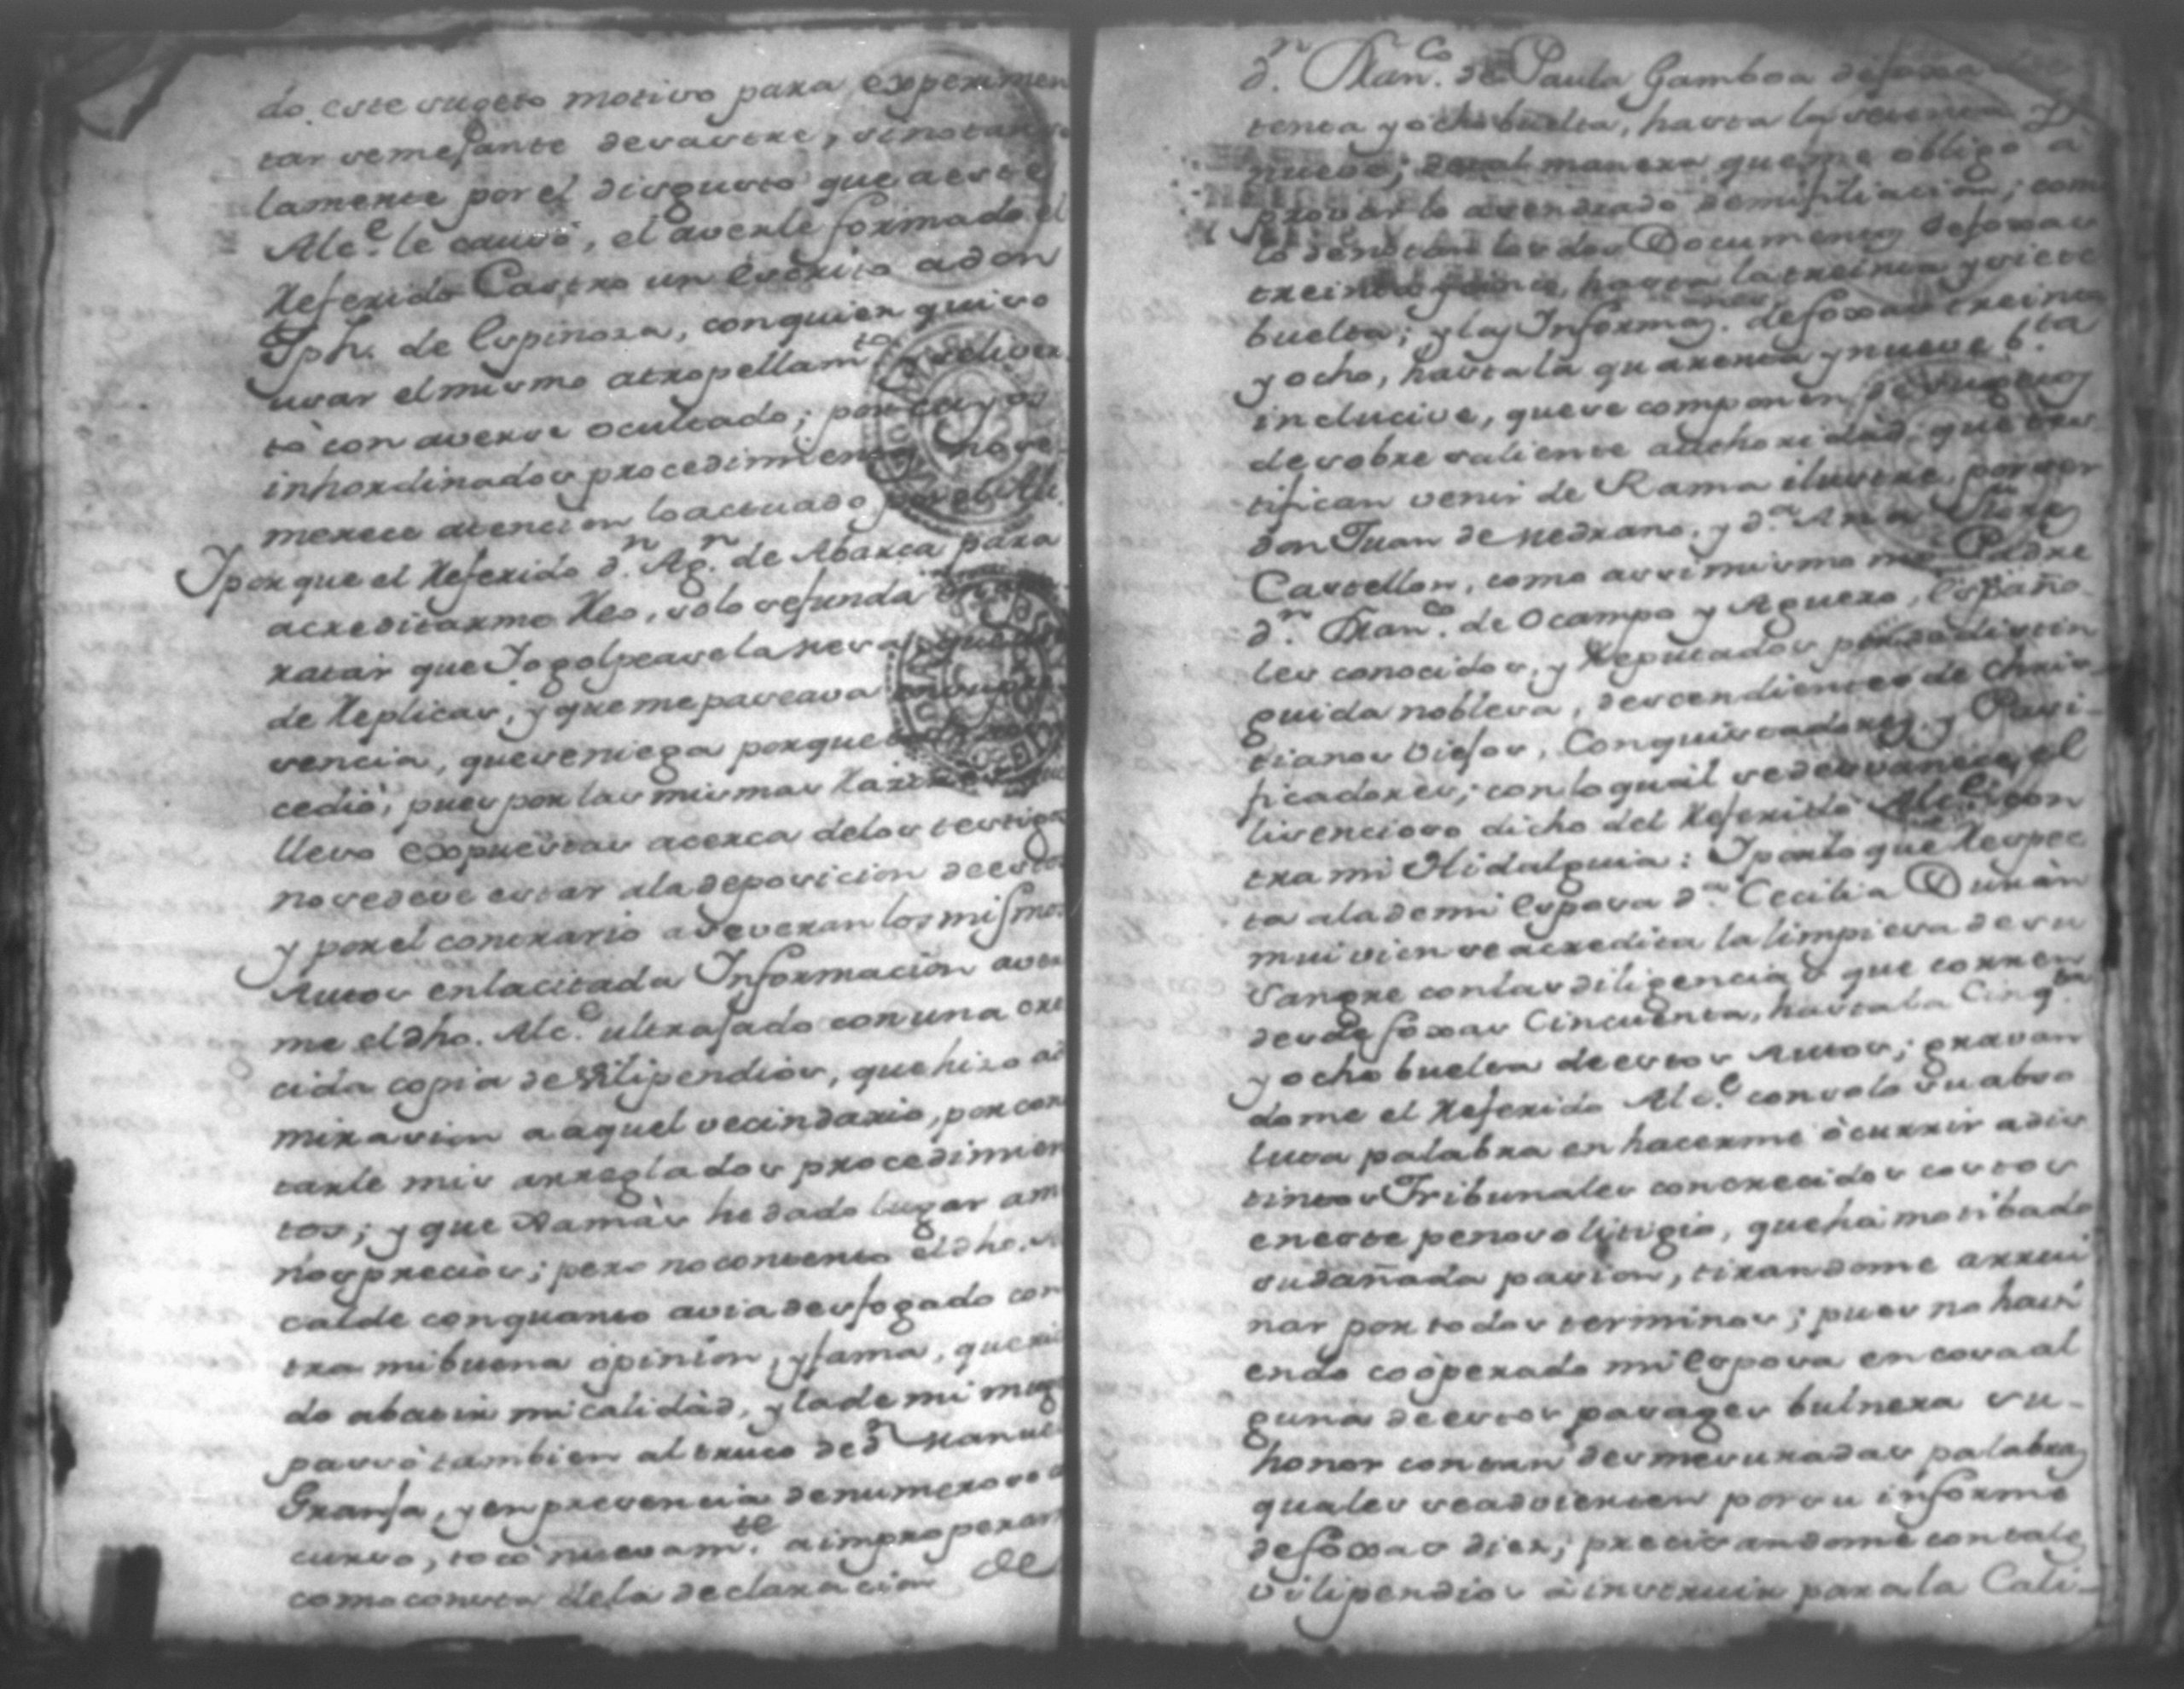 do este sugeto motivo para experimen
tar semejante desastre, sino tan so
lamente por el disgusto que a este
Alc.e le causò, el averle formado el
Referido Castro un escrito a don
Jph. de Espinosa, con quien quiso
usar el mismo atropellam.to y se liver
tò con averse ocultado; por cuyos
inhordinados procedimientos no se
merece atencion lo actuado por el Alc.
Y porque el Referido d.n Ag.n de Abarca para
acreditarme Reo, solo se funda en
ratar que Yo golpease la Mesa
de Replicas, y que me paseava
sencia, que se niega porque
cediò, pues por las mismas Razones que
llevo expuestas acerca de los testigos
no se deve estar a la deposicion de estos
y por el contrario aseveran los mismos
Autos en la citada Informacion aver
me el dho. Alc.e ultrajado con una cre
cida copia de vilipendios, que hizo ad
mirasion a aquel vecindario, por cons
tarle mis arreglados procedimien
tos; y que Jamàs he dado lugar a me
nosprecios; pero no contento el dho. Al
calde con quanto avia desfogado con
tra mi buena opinion, y fama, querien
do abatir mi calidàd, y la de mi muger
passò tambien al truco de d.n Manuel
Granja, y en presencia de numeroso con
curso, tocò nuevam.te a improperarme
como consta de la declaracion de
d.n Fran.co de Paula Gamboa de foxa
tenta y ocho buelta, hasta la setenta y
nueve; de tal manera que me obligò à
provar lo acendrado de mi filiacion; como
lo denotan los dos Documentos de foxas
treinta y cinco, hasta la treinta y siete
buelta; y las Informaz.nes de foxas treinta
y ocho, hasta la quarenta y nueve b.ta
inclucive, que se componen de sugetos
de sobresaliente authoridàd, que tes
tifican venir de Rama ilustre, por ser
don Juan de Medrano, y d.a Ana
Castellon, como assimismo mi Padre
d.n Fran.co de Ocampo y Aguero, Españo
les conocidos, y Reputados por su distin
guida noblesa, descendientes de Chris
tianos viejos, Conquistadores, y Pasi-
ficadores; con lo qual se desvanece, el
lisencioso dicho del Referido Alc.e con
tra mi Hidalguia: Y por lo que Respec
ta a la de mi Esposa d.a Cecilia Duràn
mui vien se acredita la limpiesa de su
Sangre con las diligencias que corren
desde foxas Cinquenta, hasta la Cinq.ta
y ocho buelta de estos Autos; gravan
dome el Referido Alc.e con solo su abso
luta palabra en hacerme òcurrir a dis
tintos Tribunales con crecidos costos
en este penoso litigio, que hà motibado
su dañada pasion, tirandome arrui
nar por todos terminos; pues no havi
endo coòperado mi Esposa en cosa al
guna de estos pasages bulnera su-
honor con tan desmesuradas palabras
quales se advierten por su informe
de foxas diez; precisandome con tales
vilipendios à instruir para la Cali-